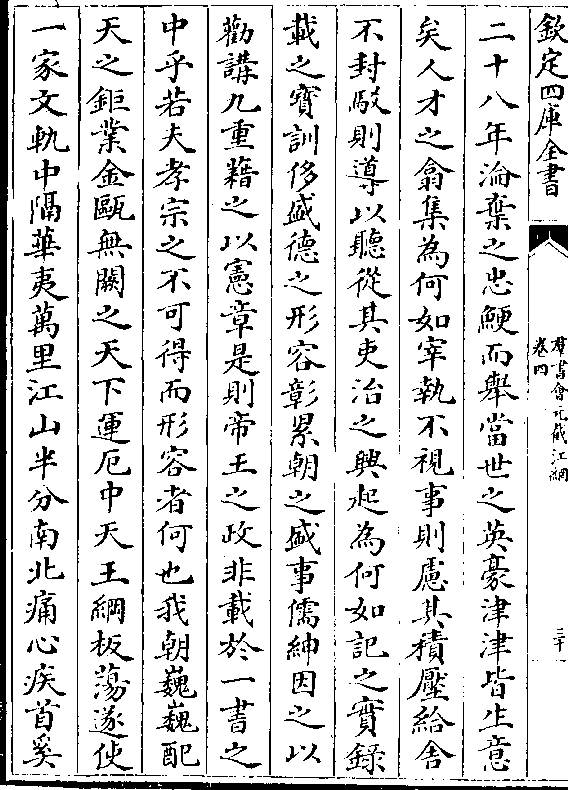 欽定四庫全書
羣書會元截江網
卷四
三十
二十八年淪棄之忠鯁而舉當世之英豪津津皆生意
矣人才之翕集為何如宰執不視事則慮其積壓給舍
不封駮則導以聽從其吏治之興起為何如記之實錄
載之寶訓侈盛德之形容彰累朝之盛事儒紳因之以
勸講九重藉之以憲章是則帝王之政非載於一書之
中乎若夫孝宗之不可得而形容者何也我朝巍巍配
天之鉅業金甌無闕之天下運厄中天王綱板蕩遂使
一家文軌中隔華夷萬里江山半分南北痛心疾首奚